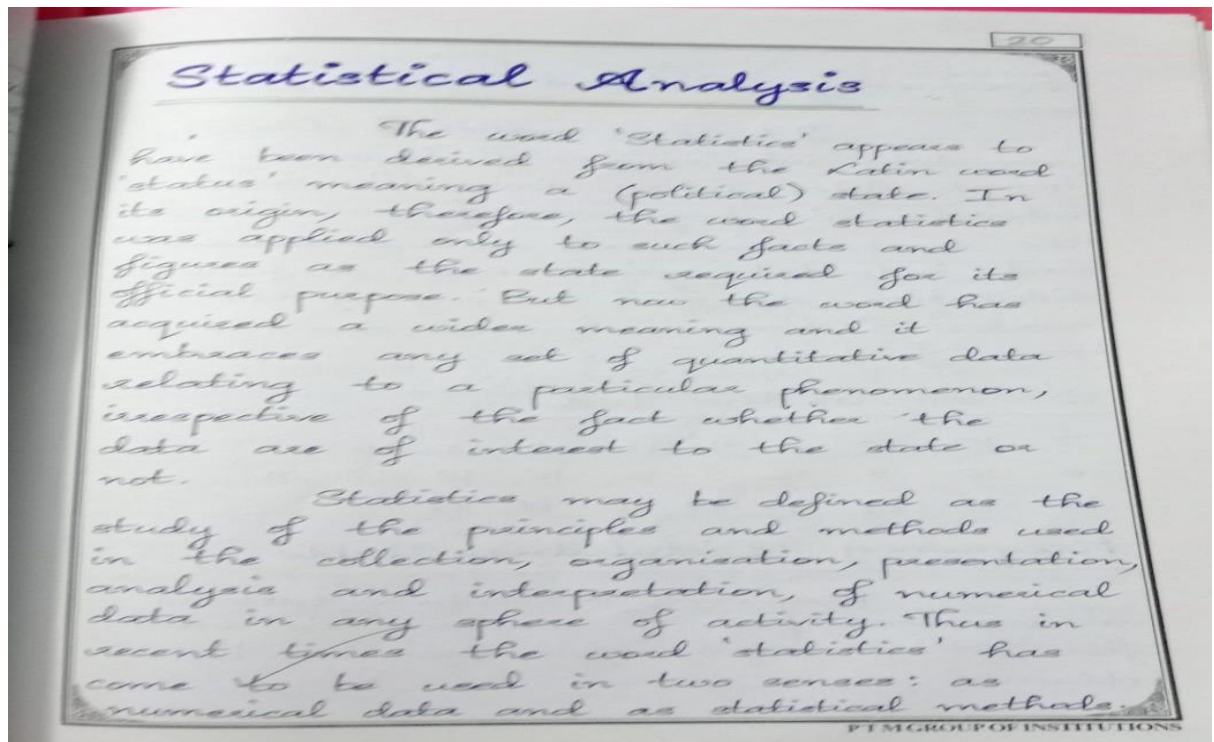 20
Statistical Analysis
The word 'Statistics' appears to
have been derived from the Latin word
'status' meaning a (political) state. In
its origin, therefore, the word statistics
was applied only to such facts and
figures as the state required for its
official purpose. But now the word has
acquired a wider meaning and it
embraces any set of quantitative data
relating to a particular phenomenon,
irrespective of the fact whether the
data are of interest to the state or
not.
Statistics may be defined as the
study of the principles and methods used
in the collection, organisation, presentation,
analysis and interpretation, of numerical
data in any sphere of activity. Thus in
recent times the word 'statistics' has
come to be used in two senses: as
numerical data and as statistical methods.
PTM GROUP OF INSTITUTIONS